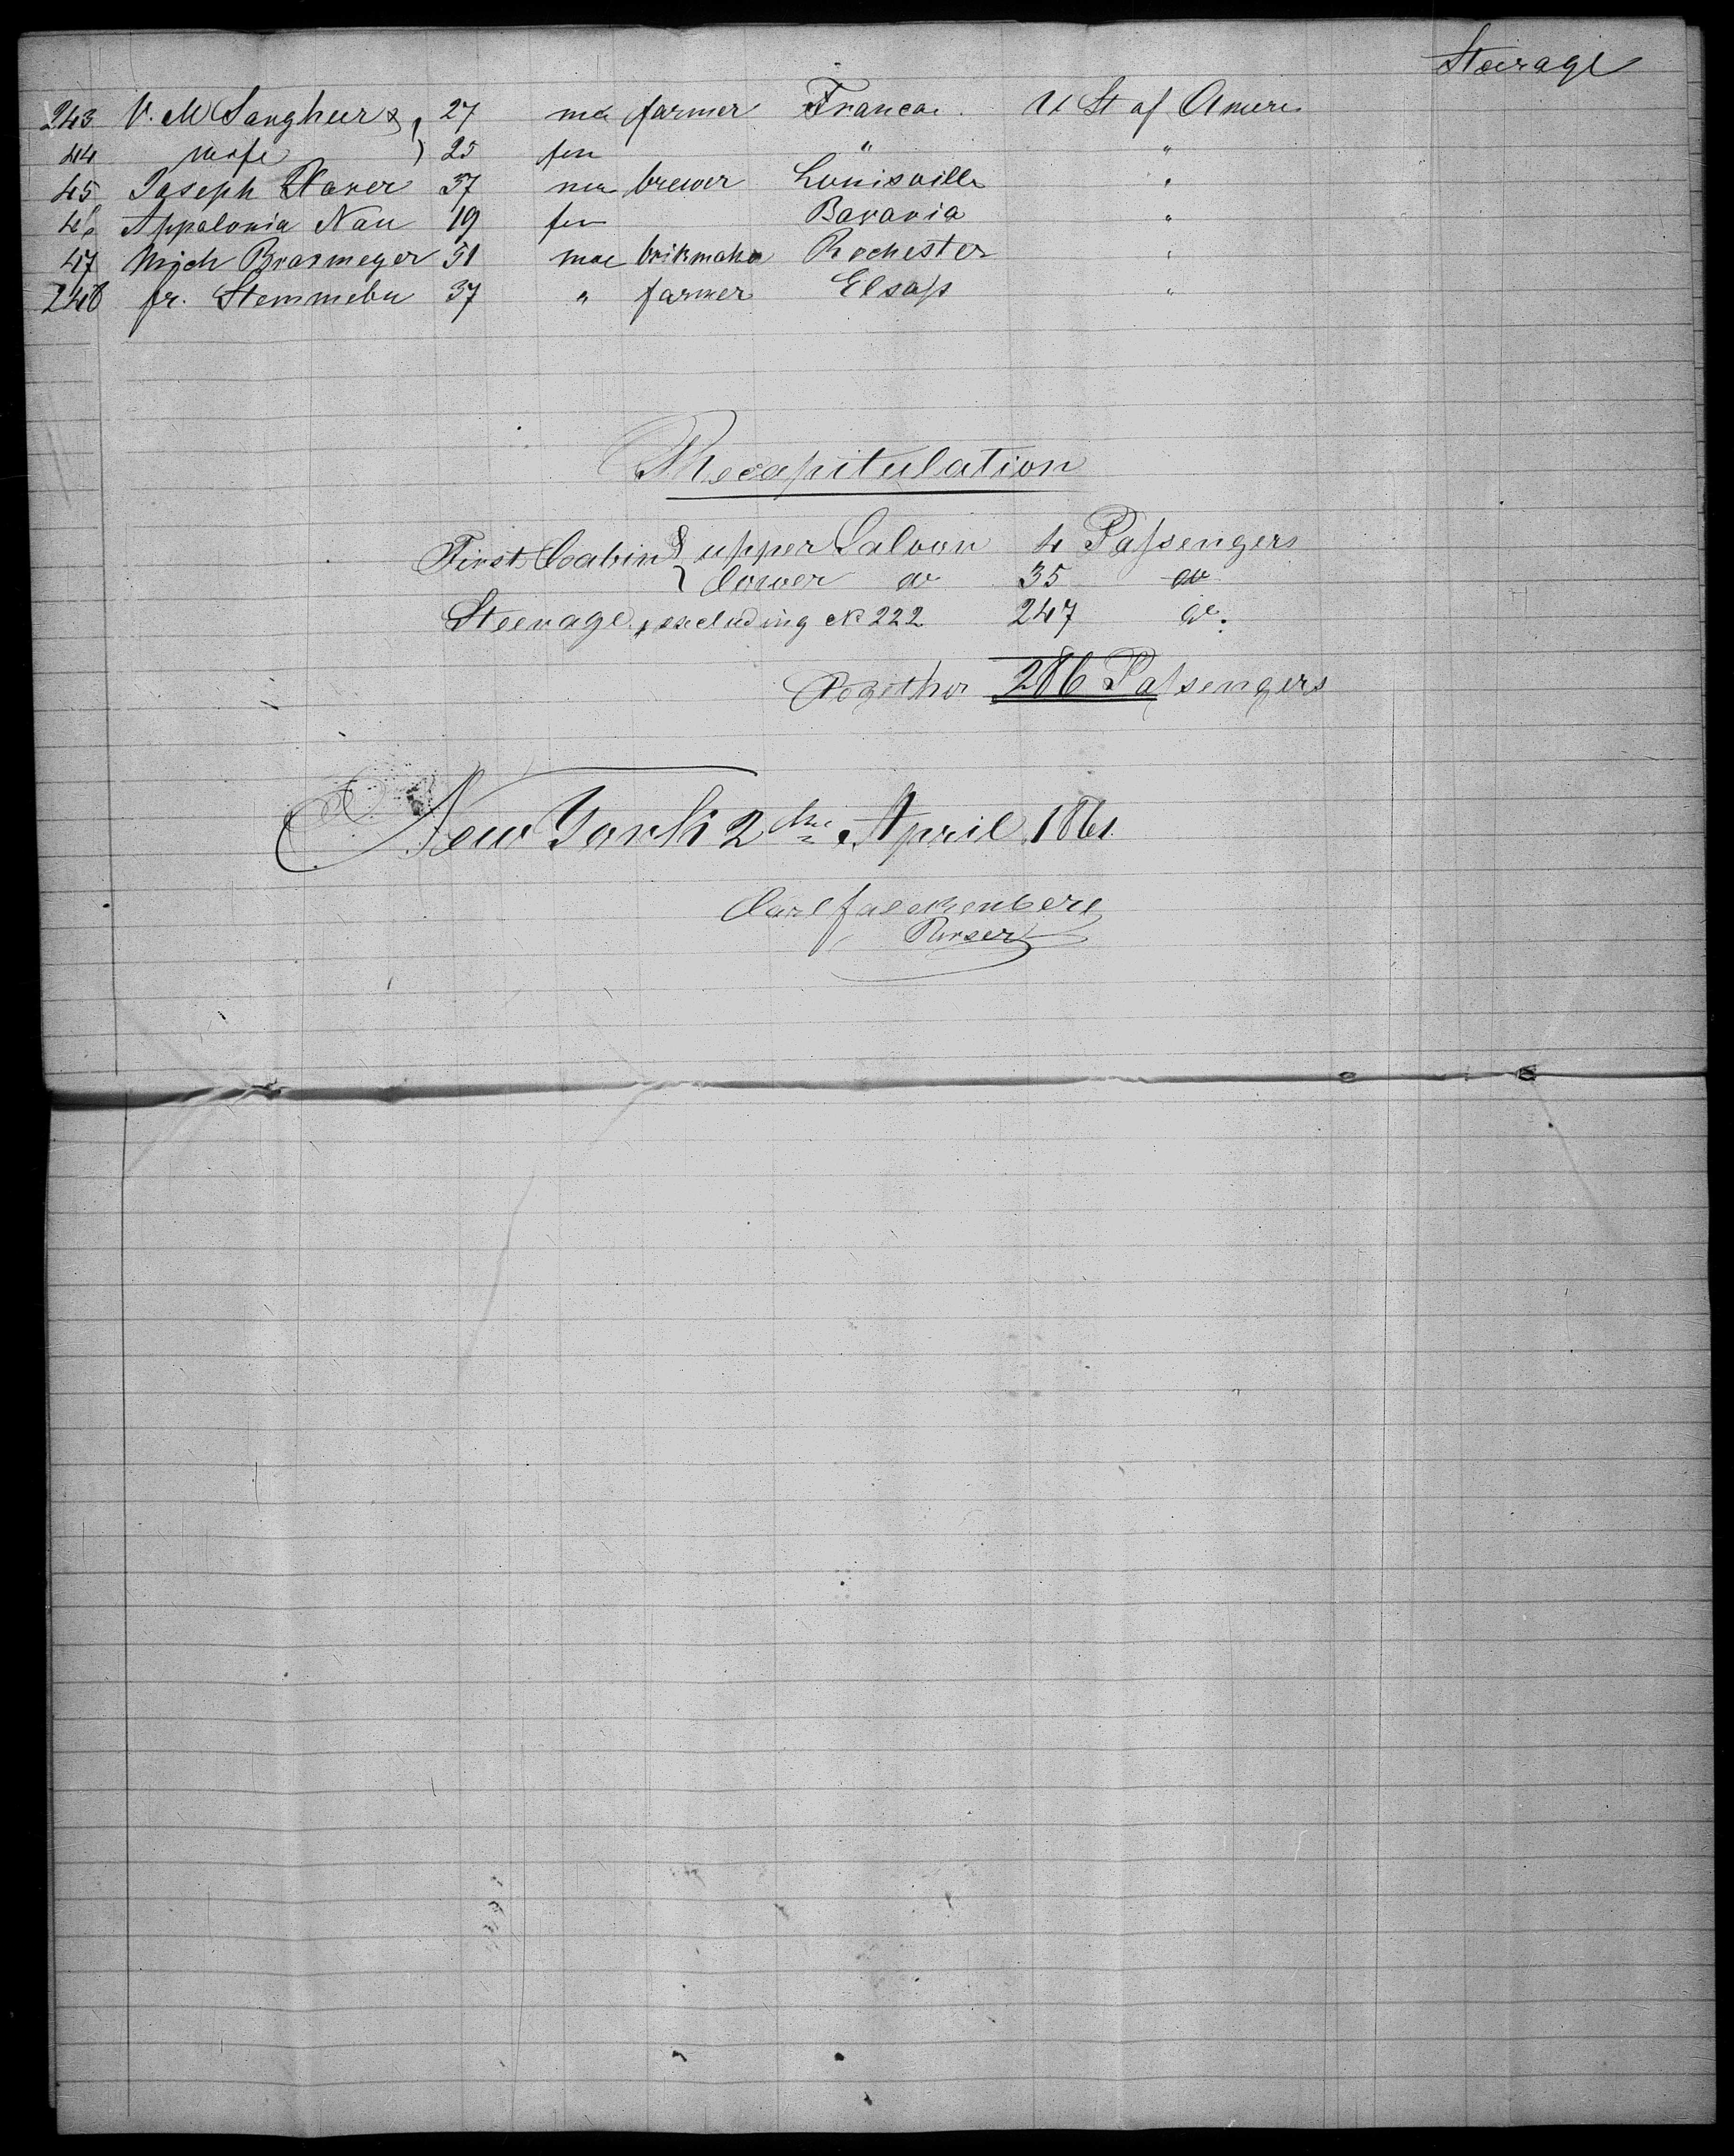 Steirage
243 V. M Langheur & 27 ma farmer France. U St of Amere
44 wife 25 fem " "
45 Joseph 37 ma brewer Louisville "
46 Appalonia Nau 19 fem Bavaria "
47 Mich Brasmeyer 51 mae brikmaker Rochester "
248 fr. Stemmebu 37 " farmer Elsass "
Recapitulation
First Cabin upper Saloon 4 Passengers
lower do 35 do
Steerage, excluding N 222 247 do.
Together 286 Passengers
New York 2the April 1861.
Carl Falckenberg
Purser